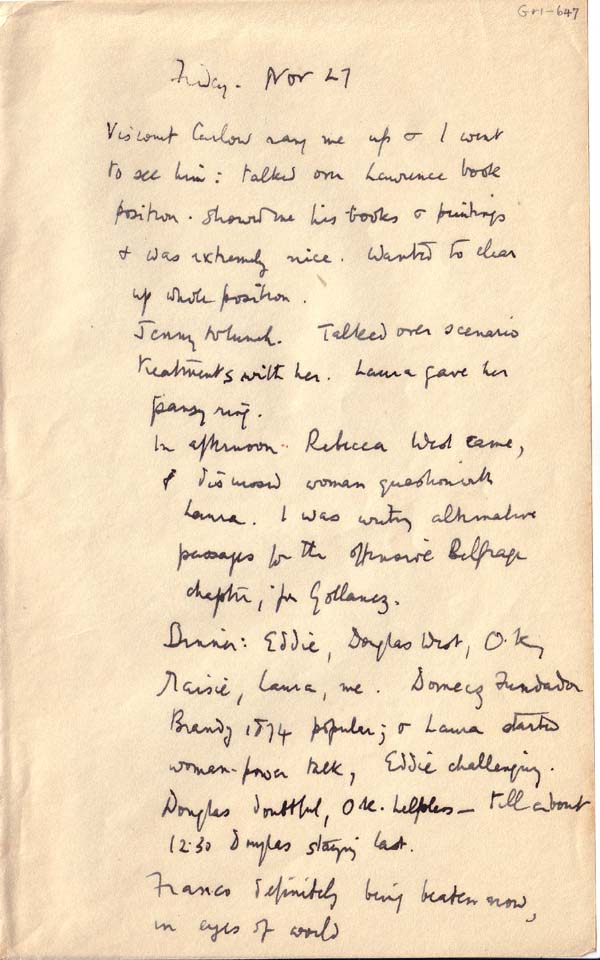 GrI-647
Friday. Nov 27
Viscount Carlow rang me up & I went
to see him: talked over Lawrence book
position. Showed me his books & printings
& was extremely nice. Wanted to clear
up whole position.
Jenny to lunch. Talked over scenario
treatments with her. Laura gave her
pansy ring.
In afternoon Rebecca West came,
& discussed woman question with
Laura. I was writing alternative
passages for the offensive Belfrage
chapter, for Gollancz.
Dinner: Eddie, Douglas West, O. K,
Maisie, Laura, me. Domecq Fundador
Brandy 1874 popular; & Laura started
woman-power talk, Eddie challenging.
Douglas doubtful, O K. helpless — till about
12.30 Douglas staying last.
Franco definitely being beaten now,
in eyes of world